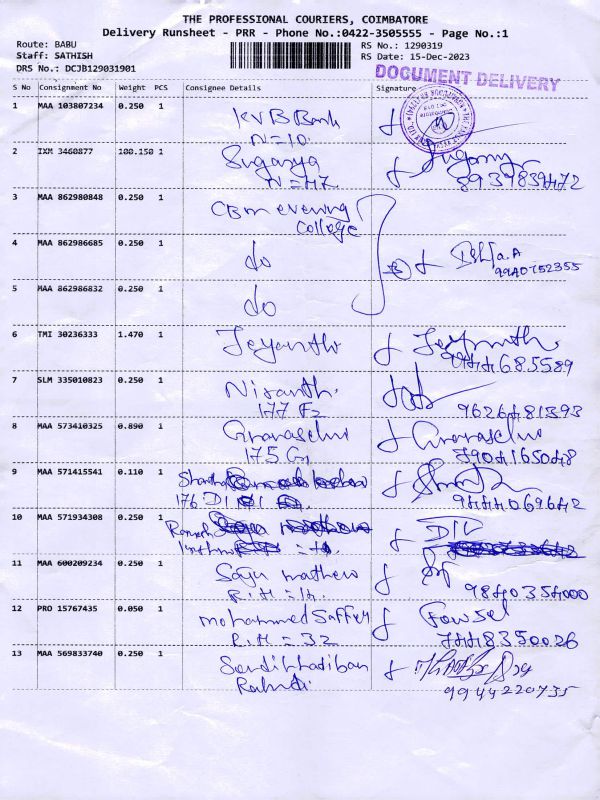 THE PROFESSIONAL COURIERS, COIMBATORE
Delivery Runsheet - PRR - Phone No.:0422-3505555 - Page No.:1
Route: BABU
Staff: SATHISH
DRS No.: DCJB129031901
RS No.: 1290319
RS Date: 15-Dec-2023
DOCUMENT DELIVERY
S No Consignment No Weight PCS Consignee Details Signature
1 MAA 103807234 0.250 1 KVB Bank
N=10.
2 IXM 3460877 100.150 1 Sugasya
N=47 8939839472
3 MAA 862980848 0.250 1 CBM evening
College
4 MAA 862986685 0.250 1 do
9940752355
5 MAA 862986832 0.250 1 do
6 TMI 30236333 1.470 1 Jeyanthi
9444685589
7 SLM 335010823 0.250 1 Nisanth.
177 F2 9626481393
8 MAA 573410325 0.890 1
175 G1 7904165048
9 MAA 571415541 0.110 1
176 D1 9444069642
10 MAA 571934308 0.250 1 DIV
11 MAA 600209234 0.250 1 Saju mathew
R.H=14. 9840354000
12 PRO 15767435 0.050 1 mohammed Saffell
R.H=32 7448350026
13 MAA 569833740 0.250 1
9944220735